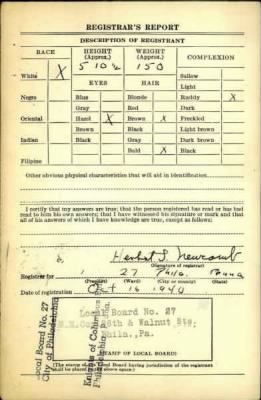 REGISTRAR'S REPORT
DESCRIPTION OF REGISTRANT
RACE HEIGHT (Approx.) WEIGHT (Approx.) COMPLEXION
White X 5 10½ 150 Sallow
EYES HAIR Light
Negro Blue Blonde Ruddy X
Gray Red Dark
Oriental Hazel X Brown X Freckled
Brown Black Light brown
Indian Black Gray Dark brown
Bald X Black
Filipino
Other obvious physical characteristics that will aid in identification
I certify that my answers are true; that the person registered has read or has had
read to him his own answers; that I have witnessed his signature or mark and that
all of his answers of which I have knowledge are true, except as follows:
(Signature of registrar)
Registrar for 1 27 Phila. Penna
(Precinct) (Ward) (City or county) (State)
Date of registration Oct 16 1940
Local Board No. 27
& Walnut Sts.
Phila., Pa.
STAMP OF LOCAL BOARD
(The stamp of the Local Board having jurisdiction of the registrant
shall be placed in the above space.)
Local Board No. 27
City of Philadelphia
Knights of Columbus